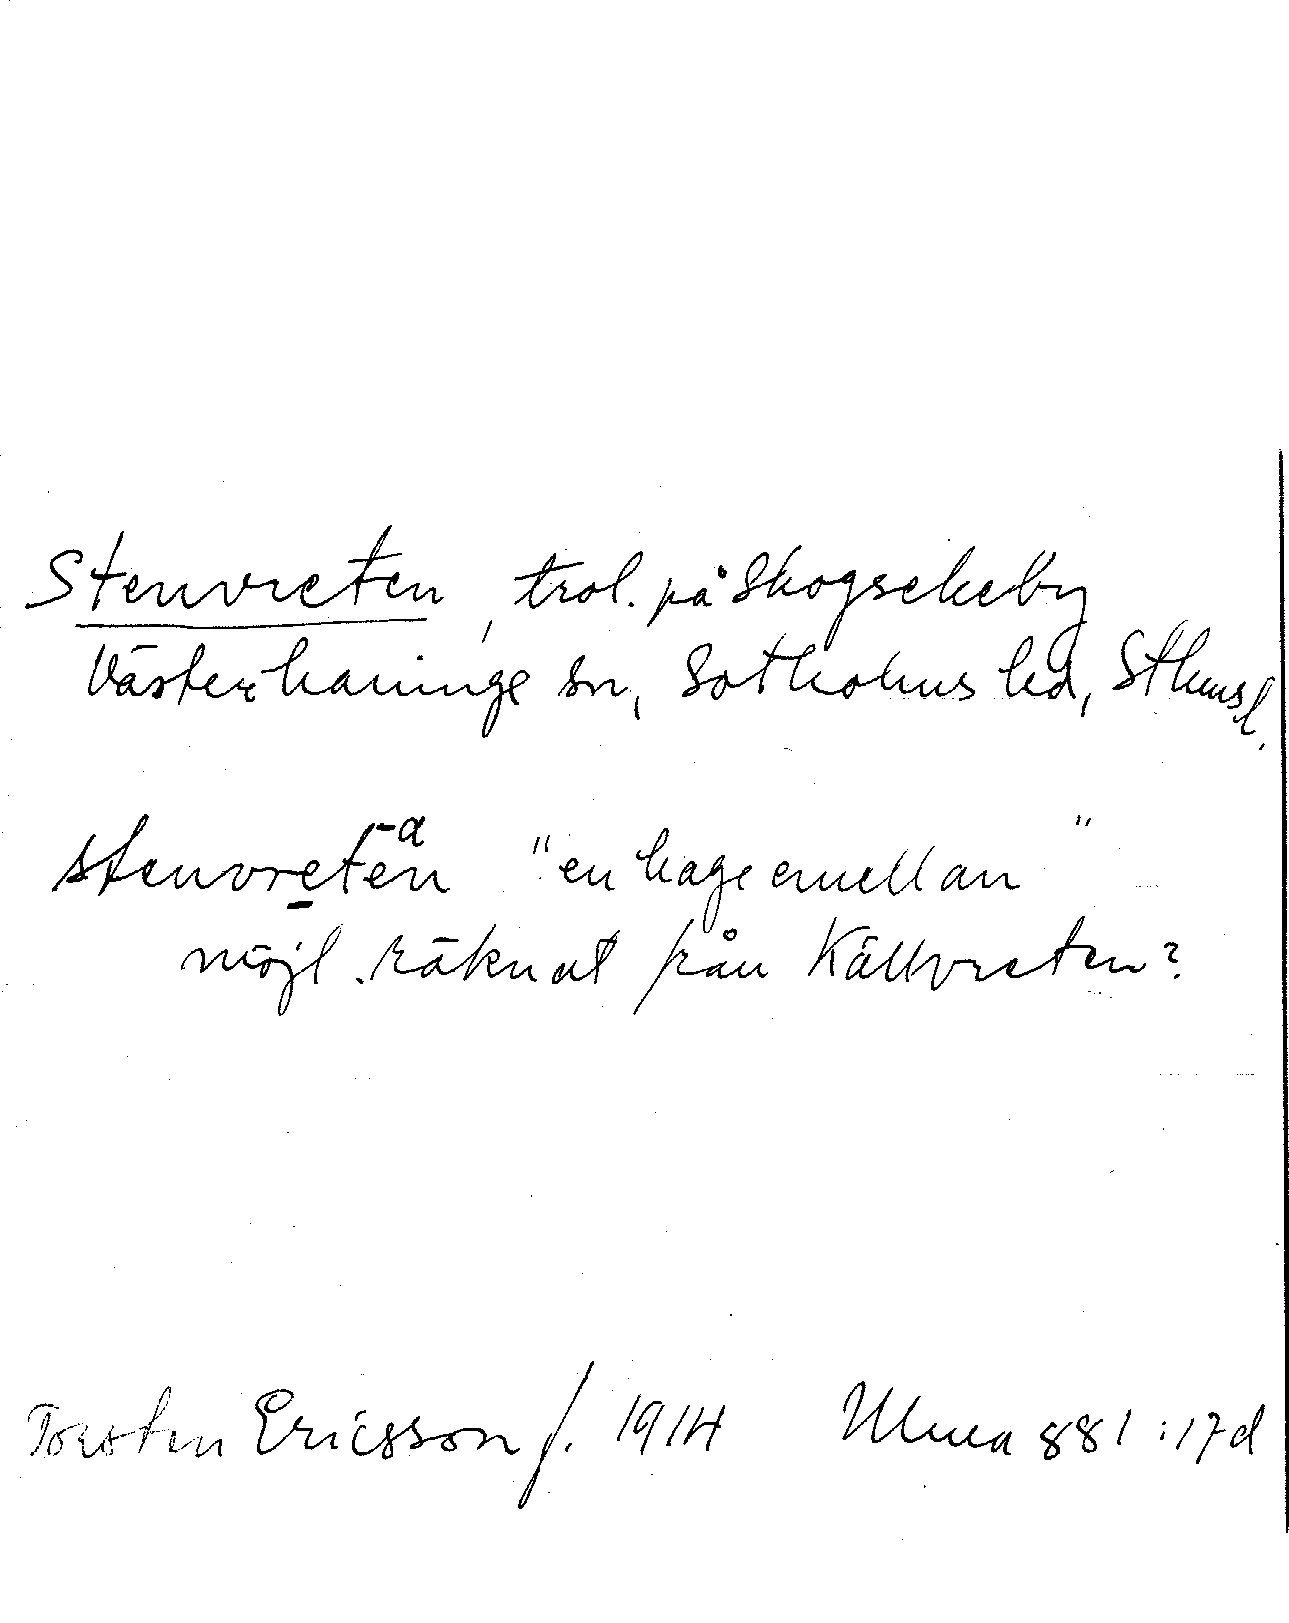 Stenvreten, trol. på Skogsekeby
Västerhaninge sn, Sotholms hd, Sthms l.
stenvretän -a "en hage emellan"
möjl. räknat från Källvreten?
Torsten Ericsson f. 1914 Ulma 881:17d